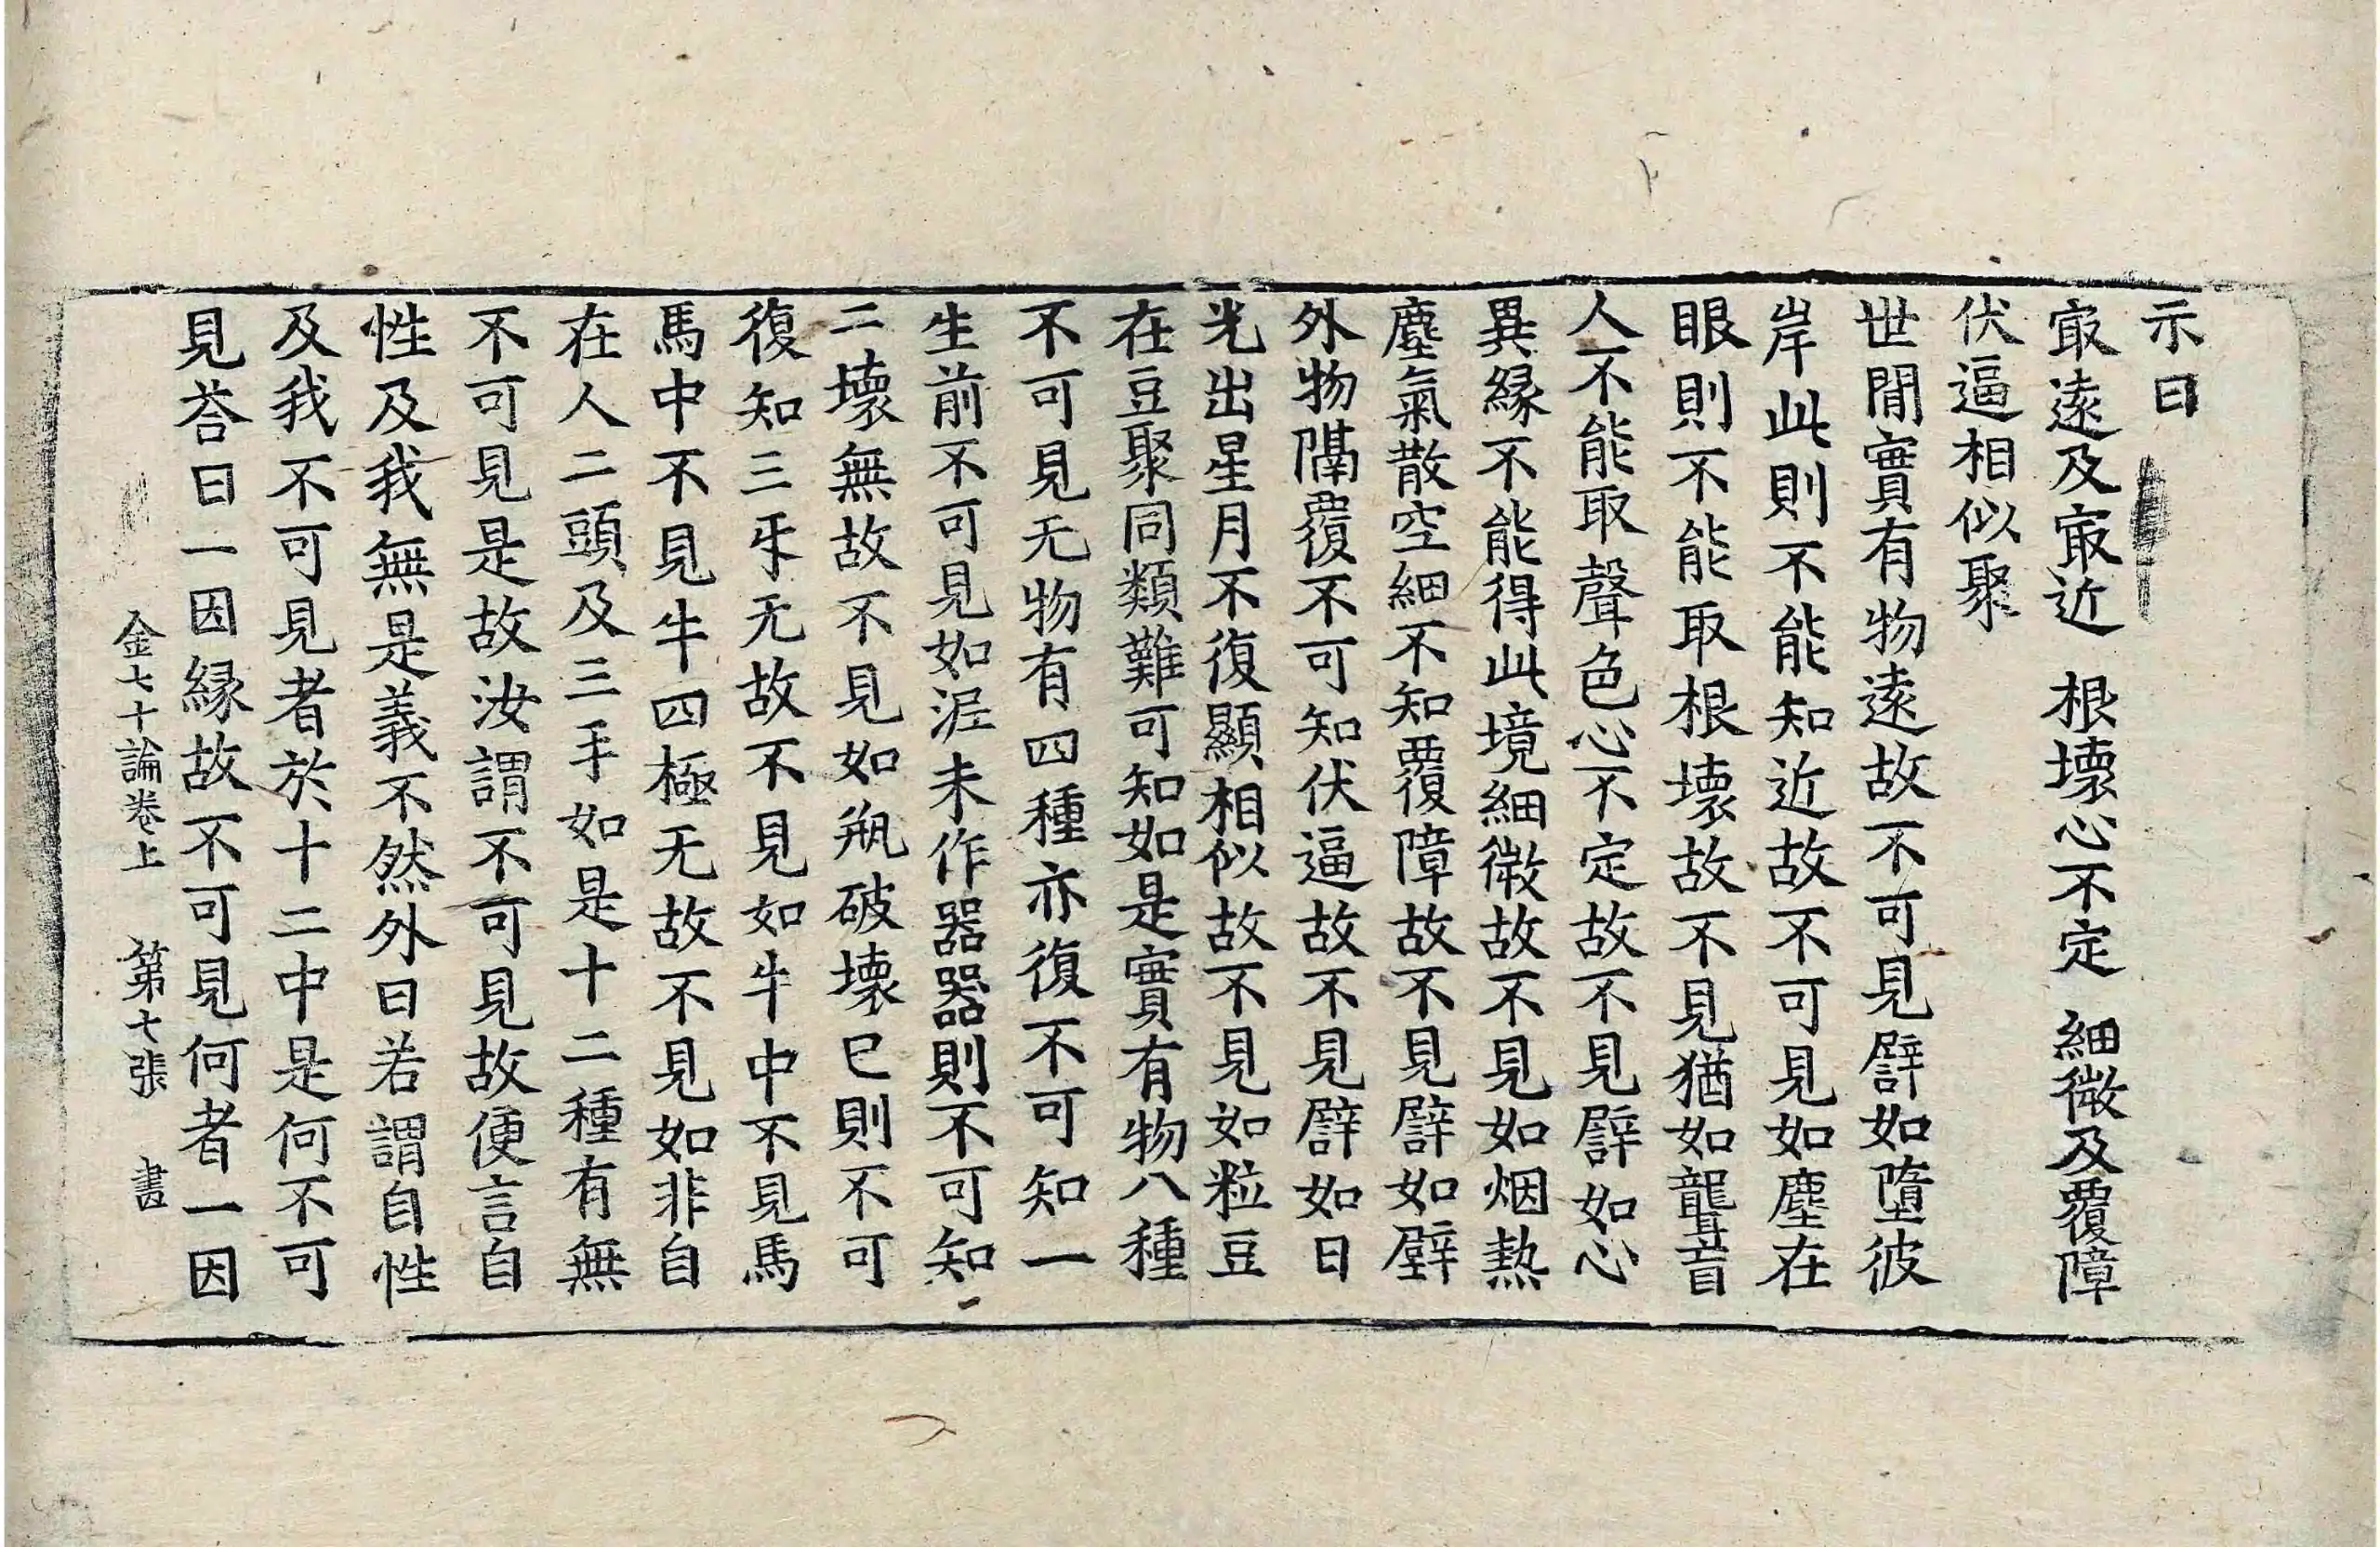 示曰
㝡遠及㝡近 根壞心不定 細微及覆障
伏逼相似聚
世間實有物遠故不可見譬如墮彼
岸此則不能知近故不可見如塵在
眼則不能取根壞故不見猶如聾盲
人不能取聲色心不定故不見譬如心
異緣不能得此境細微故不見如烟熱
塵氣散空細不知覆障故不見譬如壁
外物隔覆不可知伏逼故不見譬如日
光出星月不復顯相似故不見如粒豆
在豆聚同類難可知如是實有物八種
不可見无物有四種亦復不可知一
生前不可見如泥未作器器則不可知
二壞無故不見如瓶破壞已則不可
復知三乎无故不見如牛中不見馬
馬中不見牛四極无故不見如非自
在人二頭及三手如是十二種有無
不可見是故汝謂不可見故便言自
性及我無是義不然外曰若謂自性
及我不可見者於十二中是何不可
見荅曰一因緣故不可見何者一因
金七十論卷上 第七張 書